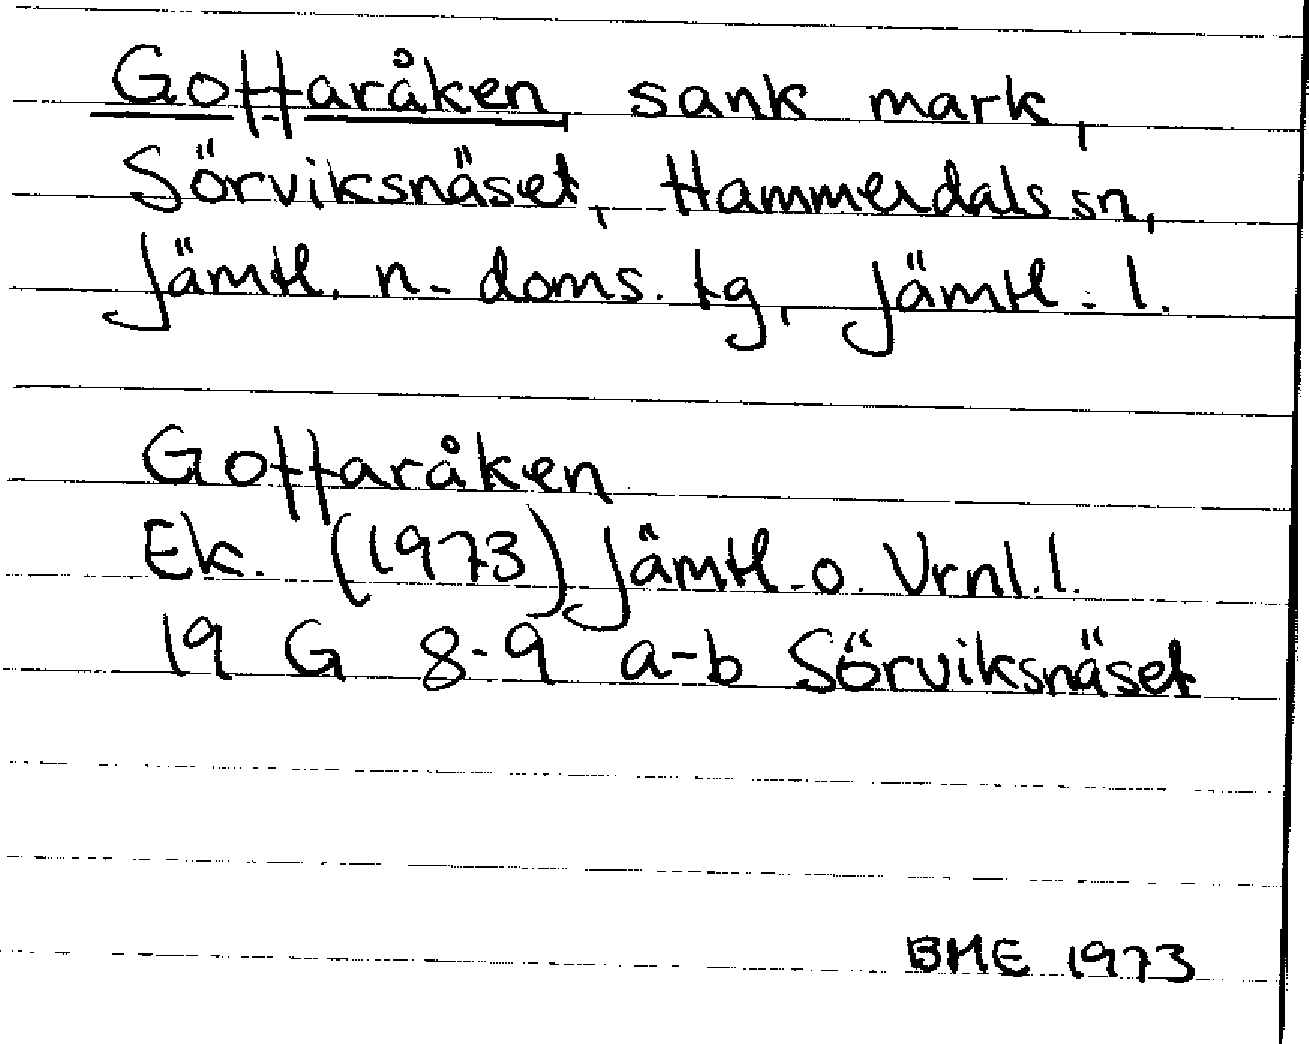 Gottaråken, sank mark,
Sörviksnäset, Hammerdals sn,
Jämtl. n. doms. tg, Jämtl. l.
Gottaråken
Ek. (1973) Jämtl. o. Vrnl. l.
19 G 8-9 a-b Sörviksnäset
BME 1973